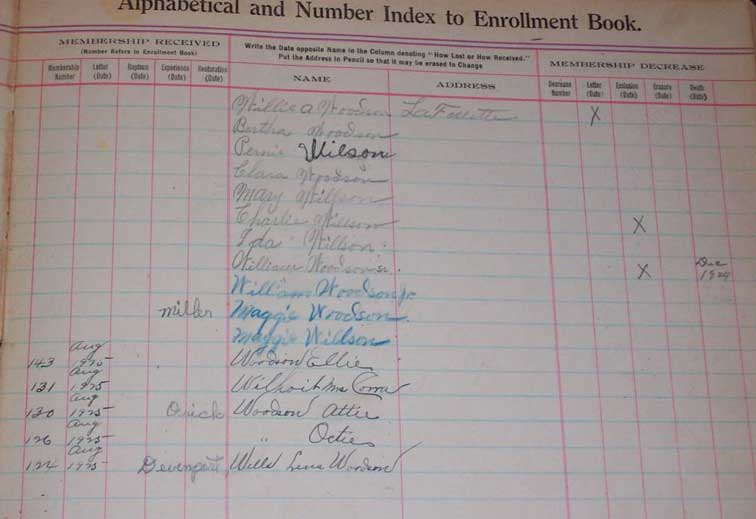 Alphabetical and Number Index to Enrollment Book.
MEMBERSHIP RECEIVED
(Number Refers in Enrollment Book)
Write the Date opposite Name in the Column denoting "How Lost or How Received."
Put the Address in Pencil so that it may be erased to Change
MEMBERSHIP DECREASE
Membership Number
Letter (Date)
Baptism (Date)
Experience (Date)
Restoration (Date)
NAME
ADDRESS
Decrease Number
Letter (Date)
Exclusion (Date)
Erasure (Date)
Death (Date)
Willie A Woodson LaFollette X
Bertha Woodson
Pernie Wilson
Clara Woodson
Mary Willson
Charlie Willson X
Ida Willson
William Woodson sr. X Dec 1924
William Woodson jr
Miller Maggie Woodson.
Maggie Willson
143 Aug 1925 Woodson Ellie
131 Aug 1925 Wilhoit Mrs Corra
130 Aug 1925 Quick Woodson Attie
126 Aug 1925 " Octie
124 Aug 1925 Devenport Wills Lena Woodson